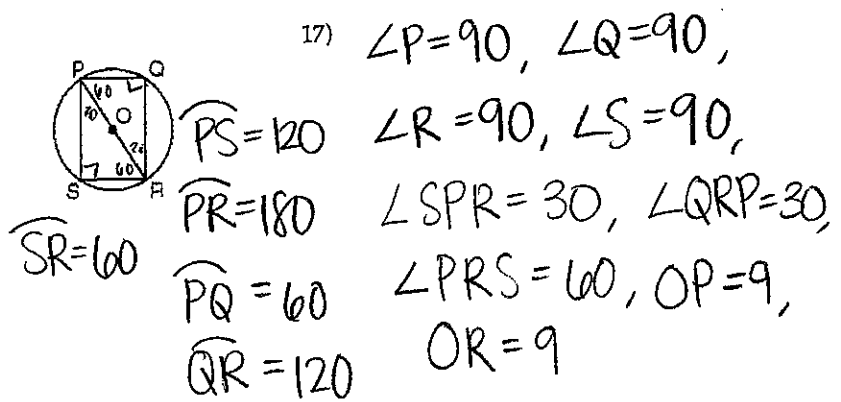 17) ∠P=90, ∠Q=90,
P Q
60
30 O
PS=120 ∠R=90, ∠S=90,
30
60
S R
PR=180 ∠SPR=30, ∠QRP=30,
SR=60
PQ=60 ∠PRS=60, OP=9,
QR=120 OR=9